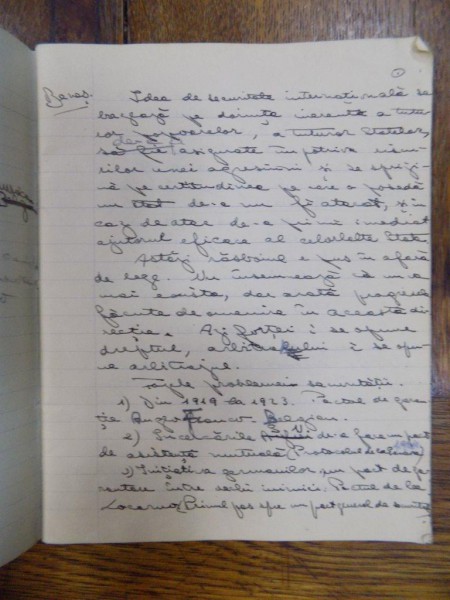 Ideea de securitate internațională se
bazează pe dorința inerentă a tutu-
ror popoarelor, a tuturor Statelor,
să fie asigurate împotriva
unei agresiuni și se spriji-
nă pe certitudinea pe care o posedă
un Stat de-a nu fi atacat, și în
caz de atac de-a primi imediat
ajutorul eficace al celorlalte State.
Astăzi răsboiul e pus în afară
de lege. Nu înseamnează că nu
mai există, dar arată progresele
făcute de omenire în această di-
recție. Azi forței i se opune
dreptul, i se opu-
ne arbitrajul.
Fazele problemei securității.
1) Din 1919 la 1923. Pactul de garan-
ție Anglo Franco-Belgian.
2) Încercările de-a face pact
de asistență mutuală (Protocolul
3) Inițiativa germanilor, un pact de ga-
rantare între Pactul de la
Locarno, Primul pas spre un pact general de